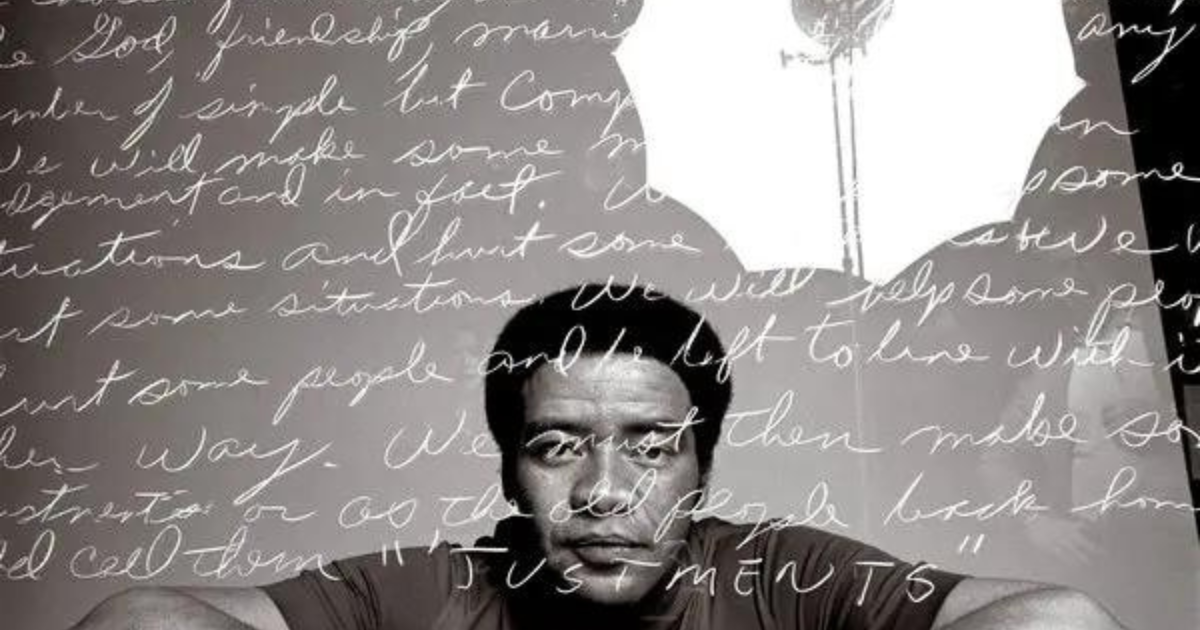 e God, friendship, marri any
mber of simple but Comp in
We will make some m
dgement and in fact. W some
tuations and hurt some
rt some situations. We will help some peop
urt some people and be left to live with i
her way. We must then make so
stments or as the old people back hom
ld call them "'JUSTMENTS"